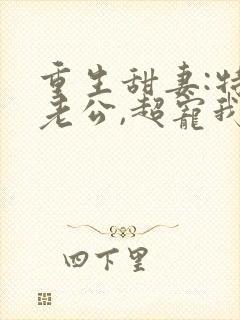 重生甜妻:特
老公,超宠我
四下里